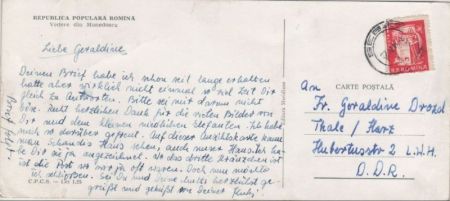 REPUBLICA POPULARĂ ROMÎNĂ
Vedere din Hunedoara
Liebe Geraldine,
Deinen Brief habe ich schon seit lange erhalten
hatte aber wirklich nicht einmal so viel Zeit Dir
gleich zu Antworten. Bitte sei mir darum nicht
böse. Recht herzlichen Dank für die vielen Bilder von
Dir und dem kleinen niedlichen Elefanten. Ich habe
mich so darüber gefreut. Auf dieser Ansichtskarte kann
man Haus sehen, auch unser Haus. Ich ha-
be Dir es ja angezeichnet. Wo das dritte Kreuzchen ist
ist die Post wo wir ja oft waren. Doch nun möchte
ich schließen. Sei Du und Deine herzlichst ge-
grüßt und geküßt von Deiner
C.P.C.S. - Lei 1,25
CARTE POȘTALĂ
R.P. ROMINA
An
Fr. Geraldine Drozd
Thale / Harz
Hubertusstr 2 L.W.H.
D.D.R.